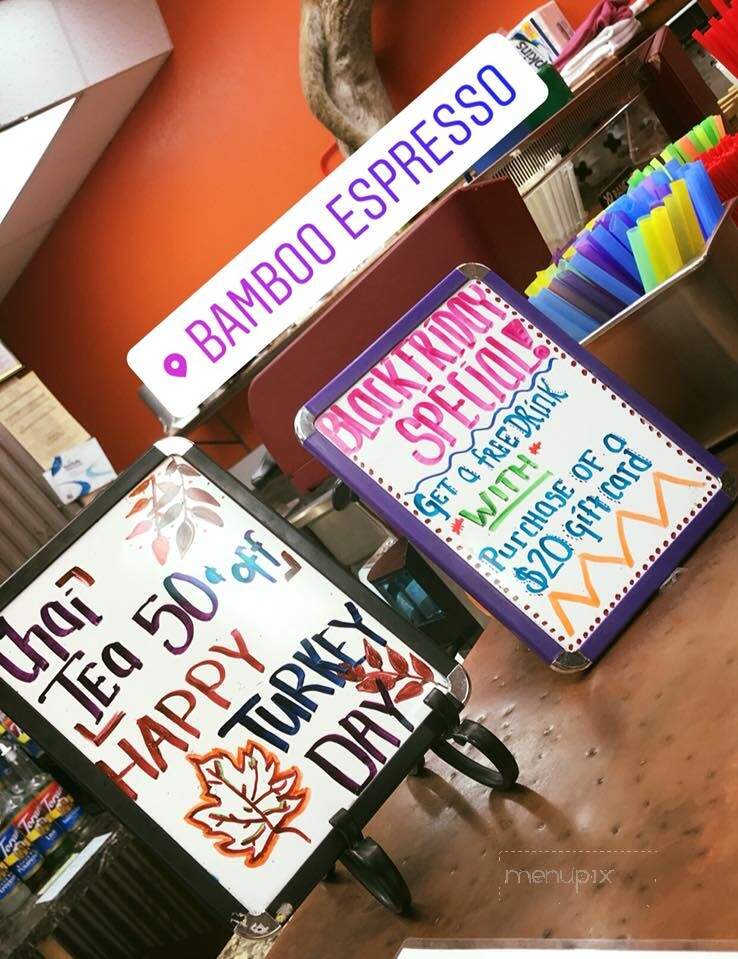 BAMBOO ESPRESSO
BLACK FRIDAY
SPECIAL!
GET A FREE DRINK
WITH
PURCHASE OF A
$20 gift card
Chai
TEA 50¢ off
HAPPY
TURKEY
DAY
Torani
menupix